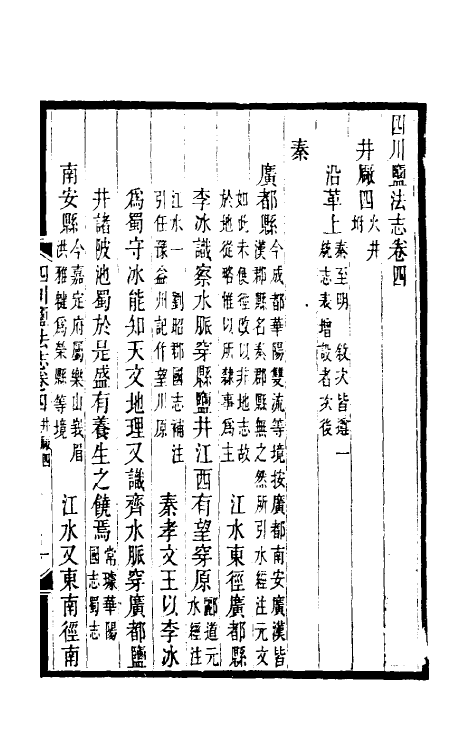 四川鹽法志卷四
井厰四火井附
沿革上秦至明 敘次皆遵一統志表增設者次後
秦
廣都縣今成都華陽雙流等境按廣都南安廣漢皆漢郡縣名秦郡縣無之然所引水經注元文如此未便徑改以非地志故於地從略惟以所隸事爲主 江水東徑廣都縣
李冰識察水脈穿縣鹽井江西有望穿原酈道元水經注
江水一 劉昭郡國志補注引任豫益州記作望川原 秦孝文王以李冰
爲蜀守冰能知天文地理又識齊水脈穿廣都鹽
井諸陂池蜀於是盛有養生之饒焉常璩華陽國志蜀志
南安縣今嘉定府屬樂山峩眉洪雅犍爲榮縣等境 江水又東南徑南
四川鹽法志卷四 井厰四 一